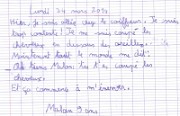 Lundi 24 mars 201
Hier, je suis allée chez le coiffeur. Je suis
trop contente! Je me suis coupé les
cheveux en dessous des oreilles.
Maintenant tout le monde me dit
Oh Manon, tu t'es coupé les
cheveux.
Et ça commence à m'énerver.
Manon 9 ans